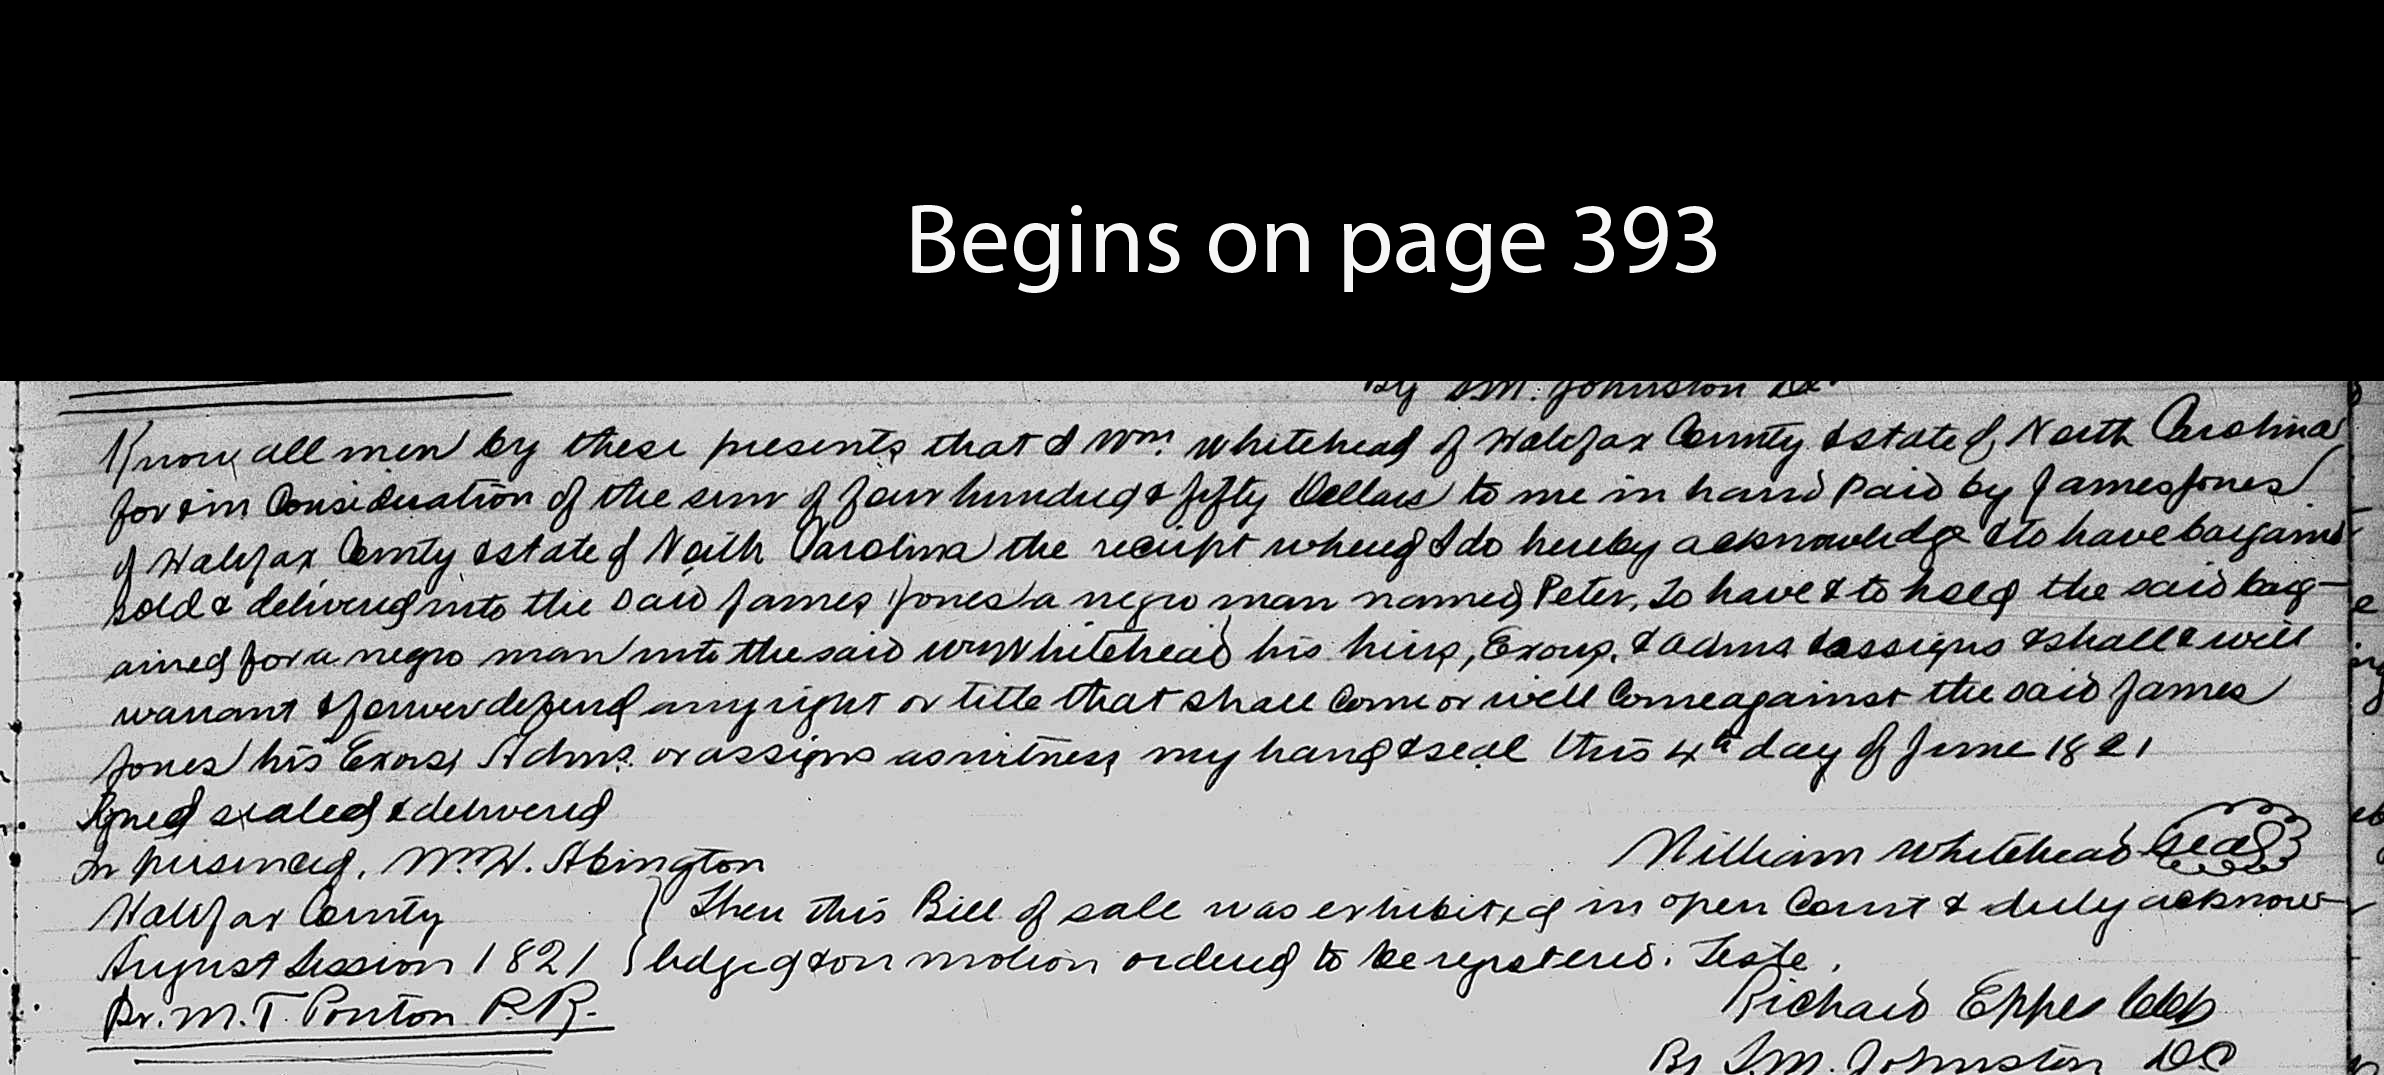 Begins on page 393
By S.M. Johnston DC
Know all men by these presents that I Wm. Whitehead of Halifax County & state of North Carolina
for & in Consideration of the sum of four hundred & fifty Dollars to me in hand paid by James Jones
of Halifax County & state of North Carolina the receipt whereof I do hereby acknowledge & to have bargained
sold & delivered unto the said James Jones a negro man named Peter, To have & to hold the said barg-
ained for a negro man unto the said Wm Whitehead his heirs, Exors, & adms & assigns & shall & will
warrant & forever defend any right or title that shall Come or will Come against the said James
Jones his Exors, Adms. or assigns as witness my hand & seal this 4th day of June 1821
Signed sealed & delivered
In presence of, Wm. W. Abington
William Whitehead Seal
Halifax County } Then this Bill of sale was exhibited in open Court & duly acknow-
August Session 1821 } ledged & on motion ordered to be registered. Teste,
Richard Eppes Clk
Pr. M. T. Ponton P.R.
By S.M. Johnston DC